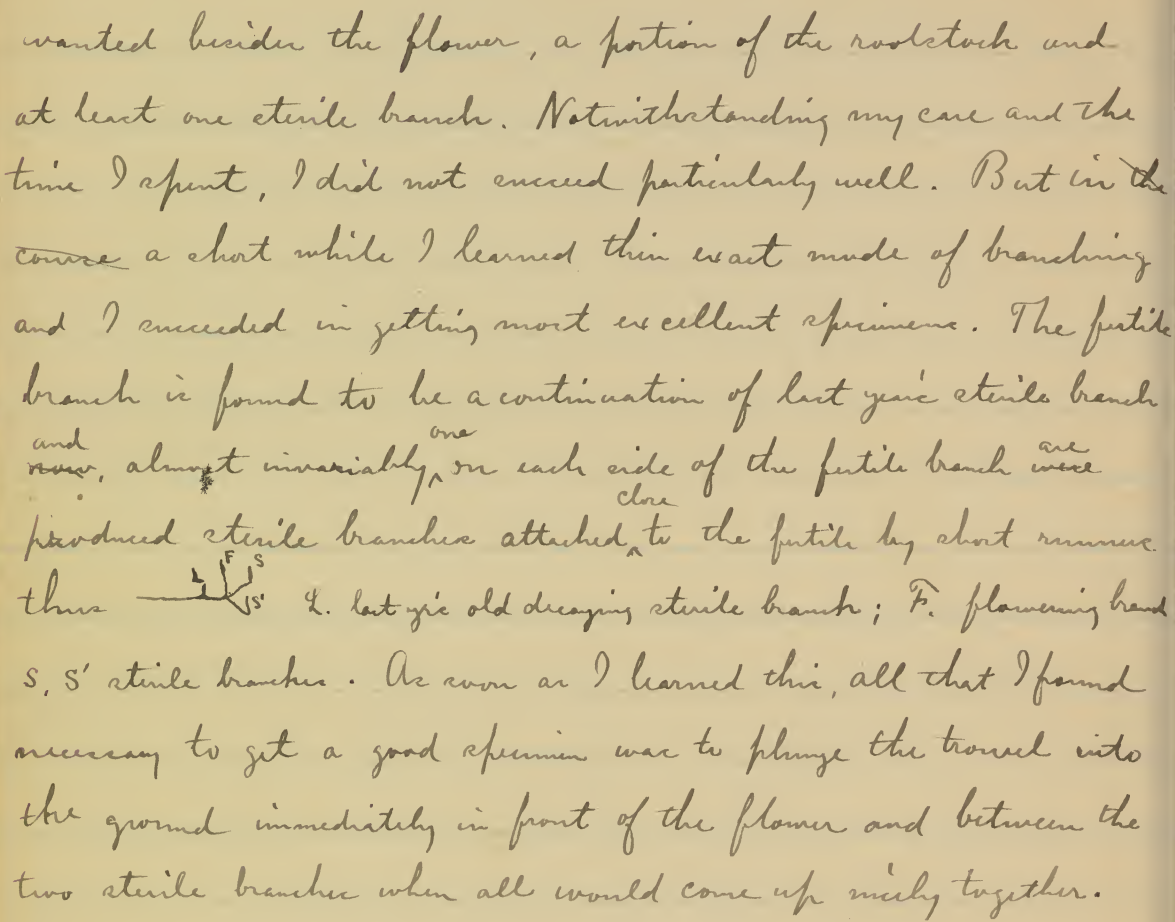 wanted besides the flower, a portion of the rootstock and
at least one sterile branch. Notwithstanding my care and the
time I spent, I did not succeed particularly well. But in the
course a short while I learned this exact mode of branching
and I succeeded in getting most excellent specimens. The fertile
branch is found to be a continuation of last year's sterile branch
and
now, almost invariably, one on each side of the fertile branch are were
produced sterile branches attached close to the fertile by short runners.
thus L F S S' L. last yr's old decaying sterile branch; F. flowering branch
S, S' sterile branches. As soon as I learned this, all that I found
necessary to get a good specimen was to plunge the trowel into
the ground immediately in front of the flower and between the
two sterile branches when all would come up nicely together.